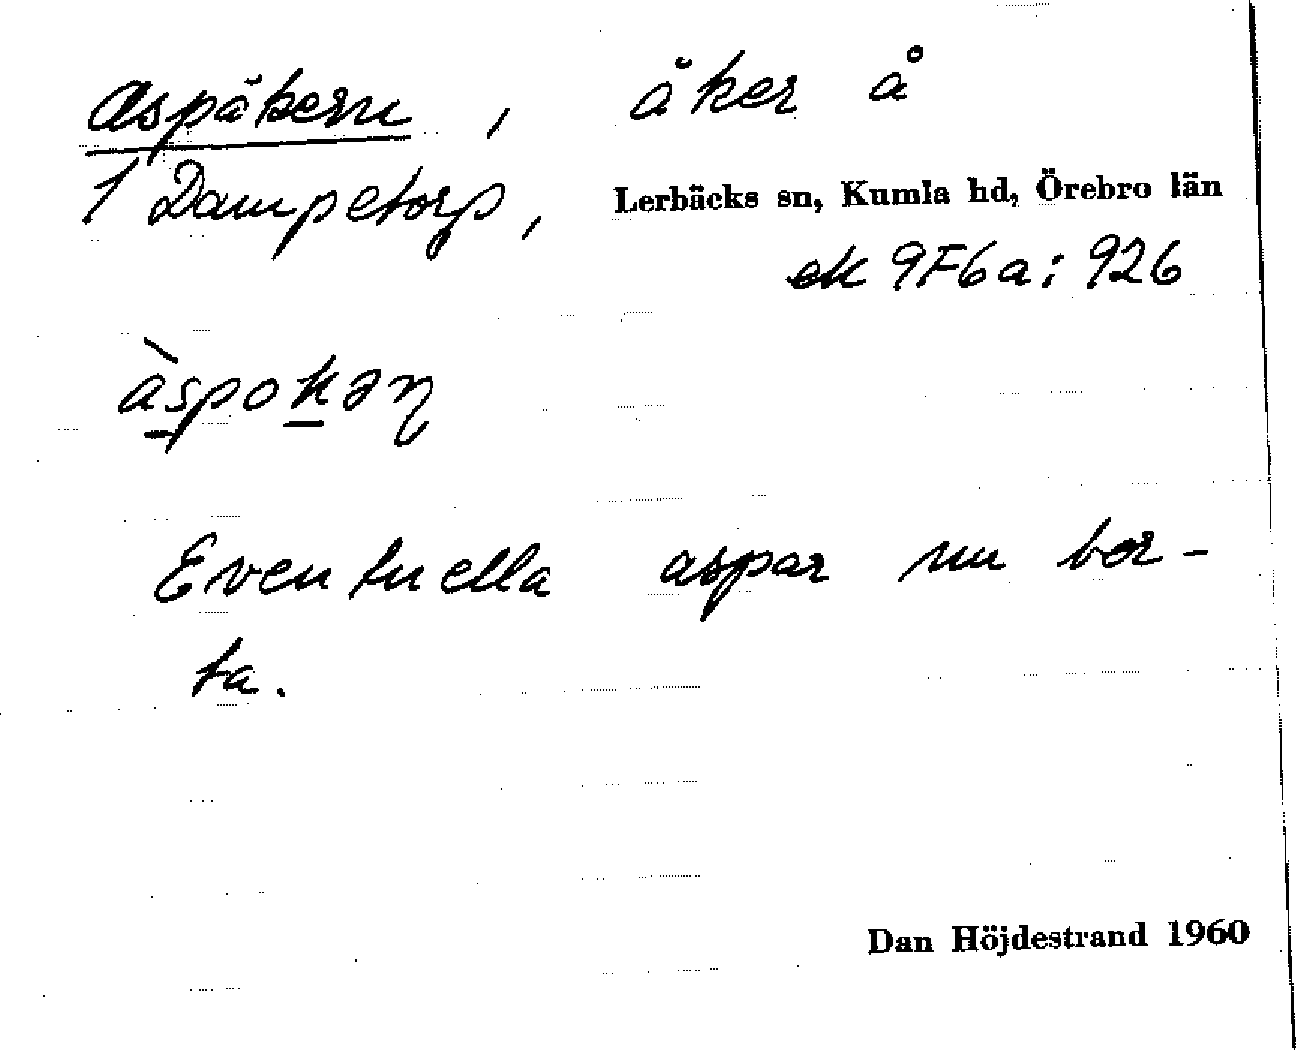 Aspåkern, åker å
1 Dampetorp, Lerbäcks sn, Kumla hd, Örebro län
ek 9F6a: 926
àspokəɳ
Eventuella aspar nu bor-
ta.
Dan Höjdestrand 1960